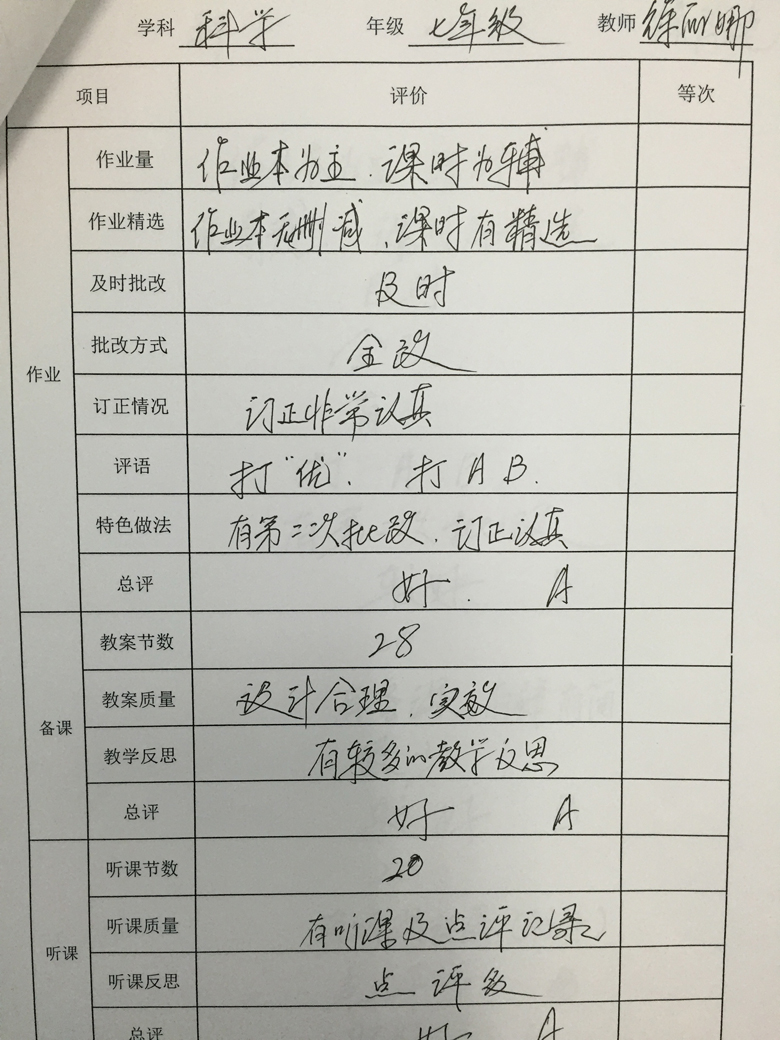 学科 科学 年级 七年级 教师 徐丽娜
项目 评价 等次
作业
作业量 作业本为主.课时为辅
作业精选 作业本无删减、课时有精选
及时批改 及时
批改方式 全改
订正情况 订正非常认真
评语 打“优”. 打 A B.
特色做法 有第二次批改.订正认真
总评 好. A
备课
教案节数 28
教案质量 设计合理.实效
教学反思 有较多的教学反思
总评 好 A
听课
听课节数 20
听课质量 有听课及点评记录
听课反思 点评多
总评 好 A